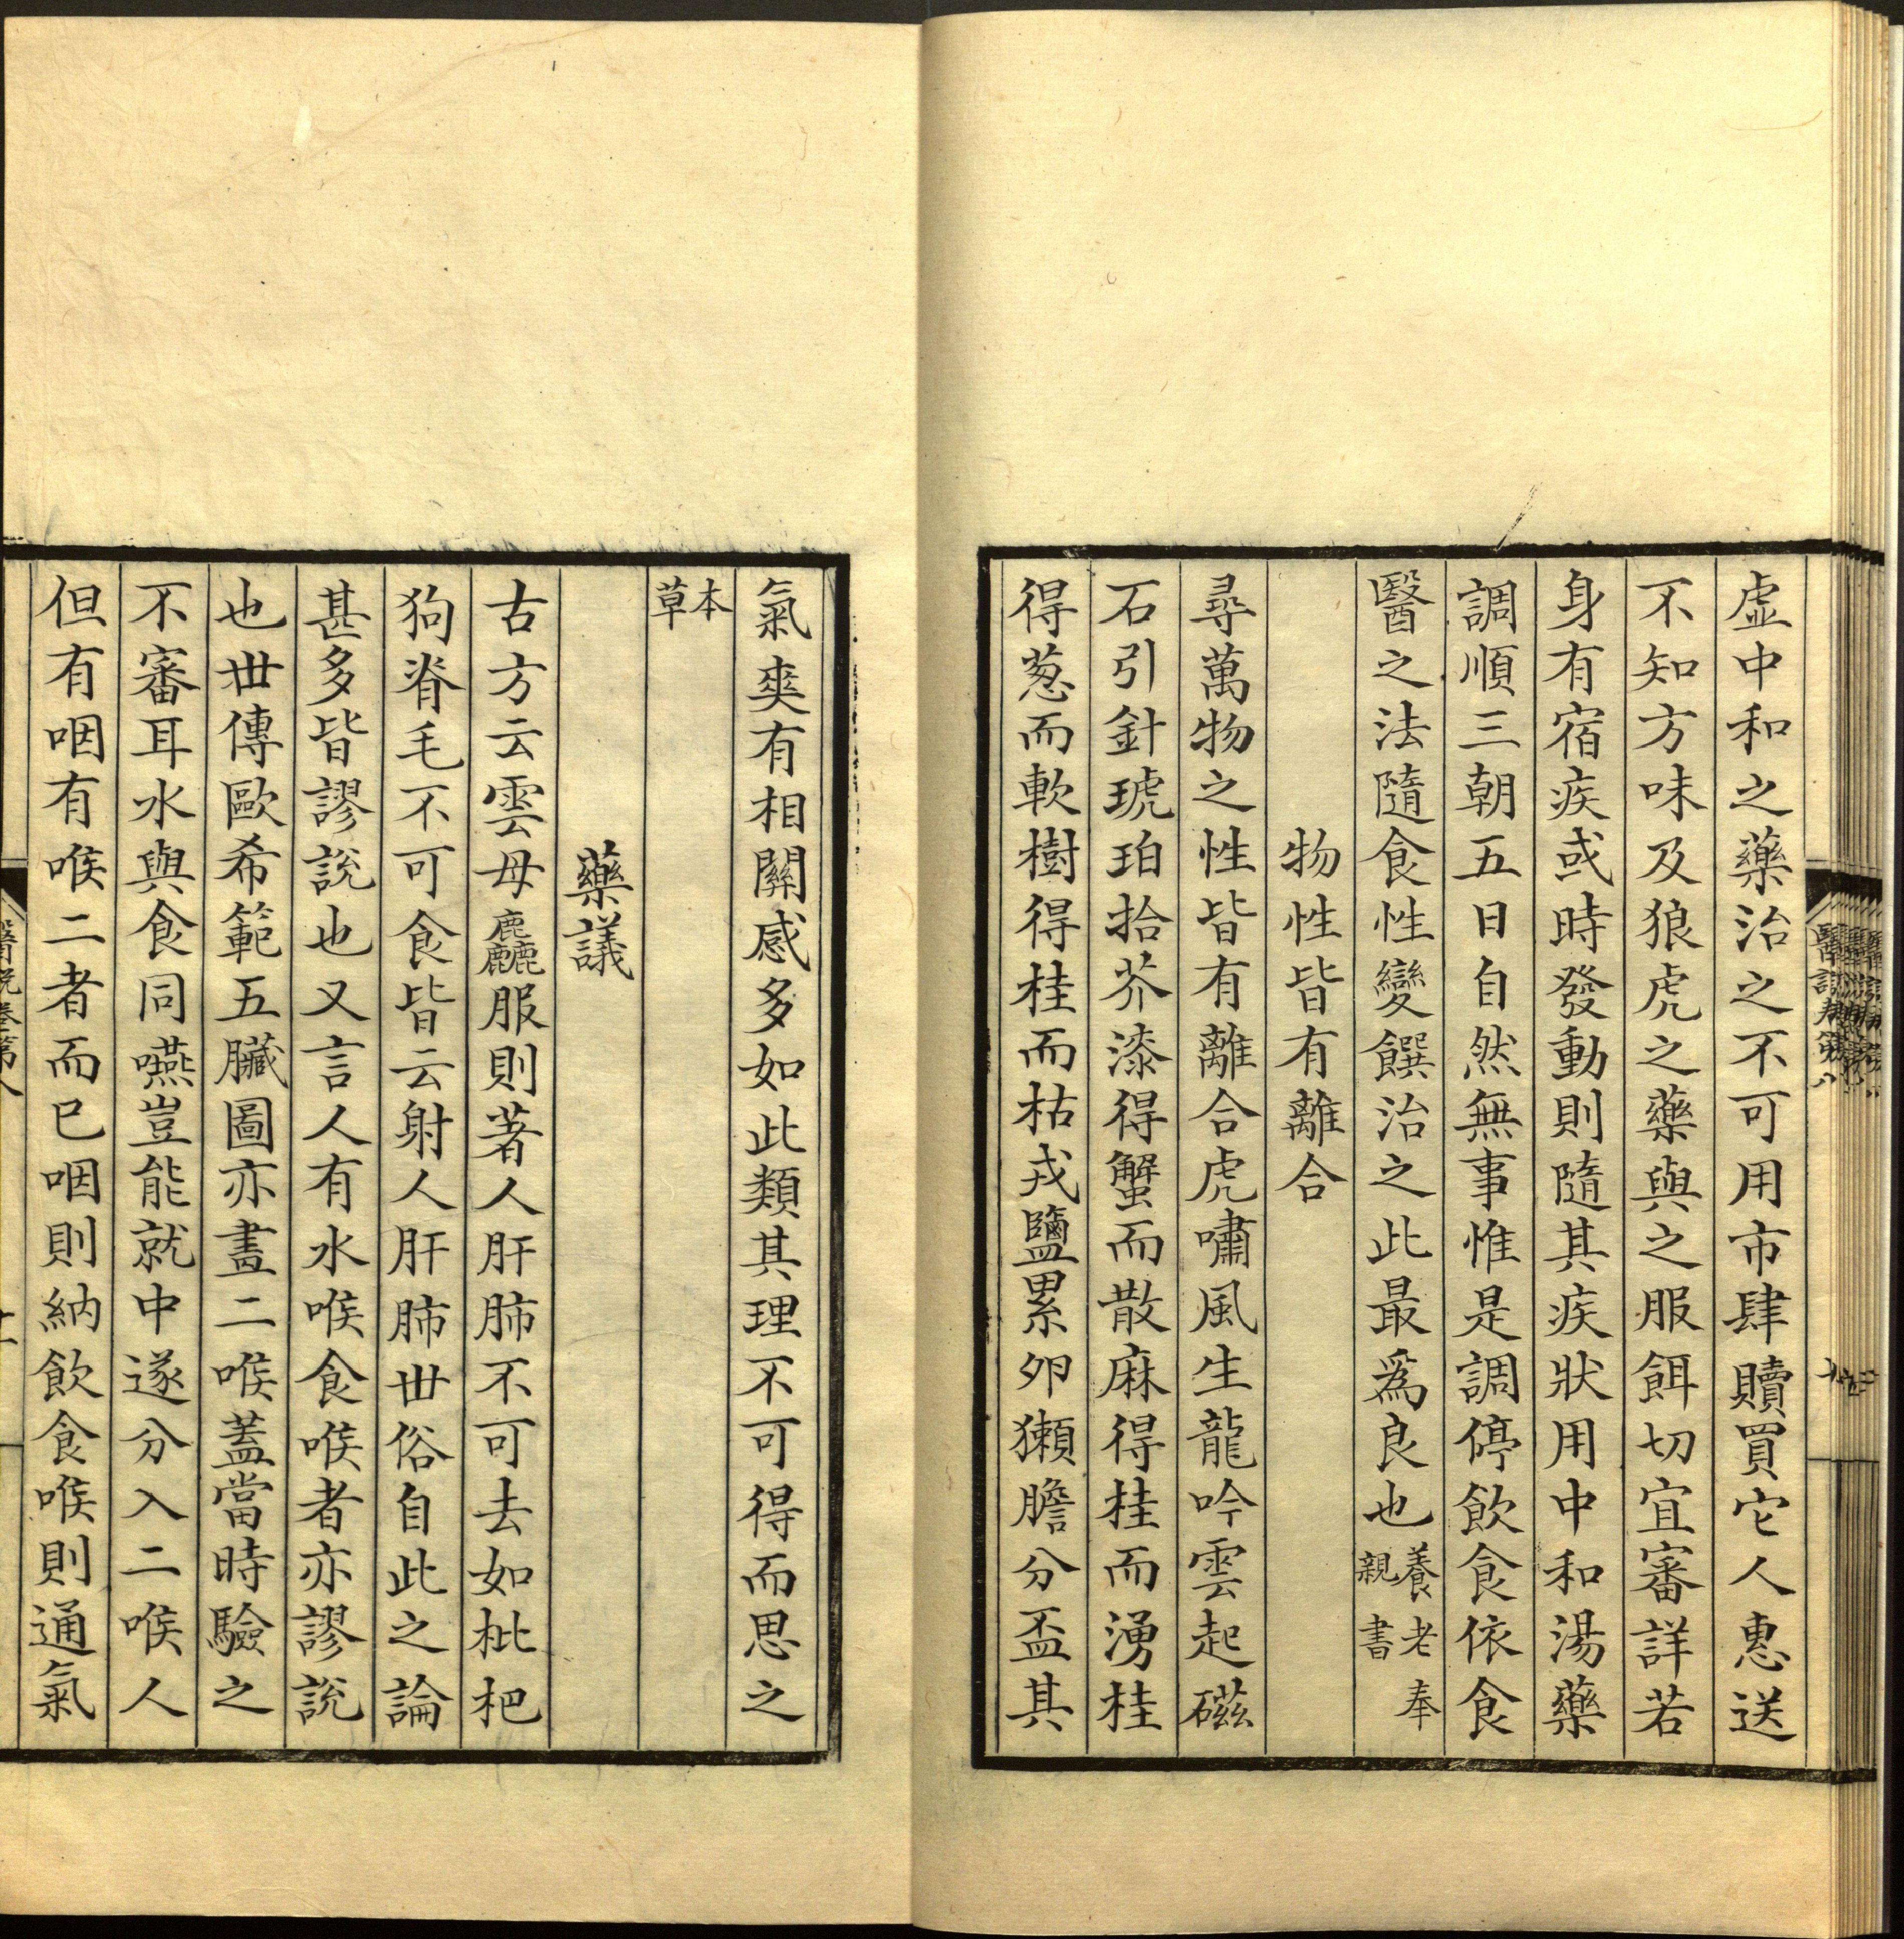 虛中和之藥治之不可用市肆贖買它人惠送
不知方味及狼虎之藥與之服餌切宜審詳若
身有宿疾或時發動則隨其疾狀用中和湯藥
調順三朝五日自然無事惟是調停飲食依食
醫之法隨食性變饌治之此最爲良也養老奉親書
物性皆有離合
尋萬物之性皆有離合虎嘯風生龍吟雲起磁
石引針琥珀拾芥漆得蟹而散麻得桂而湧桂
得葱而軟樹得桂而枯戎鹽累卵獺膽分盃其
氣爽有相關感多如此類其理不可得而思之
本草
藥議
古方云雲母麤服則著人肝肺不可去如枇杷
狗脊毛不可食皆云射人肝肺世俗自此之論
甚多皆謬說也又言人有水喉食喉者亦謬說
也世傳歐希範五臟圖亦畫二喉蓋當時驗之
不審耳水與食同嚥豈能就中遂分入二喉人
但有咽有喉二者而已咽則納飲食喉則通氣
醫說卷第八